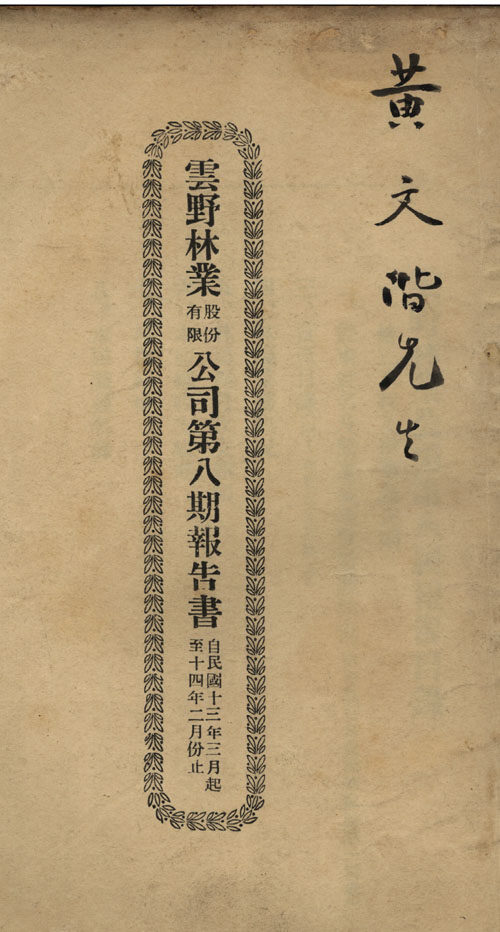 黄文階先生
雲野林業股份有限公司第八期報告書
自民國十三年三月起
至十四年二月份止